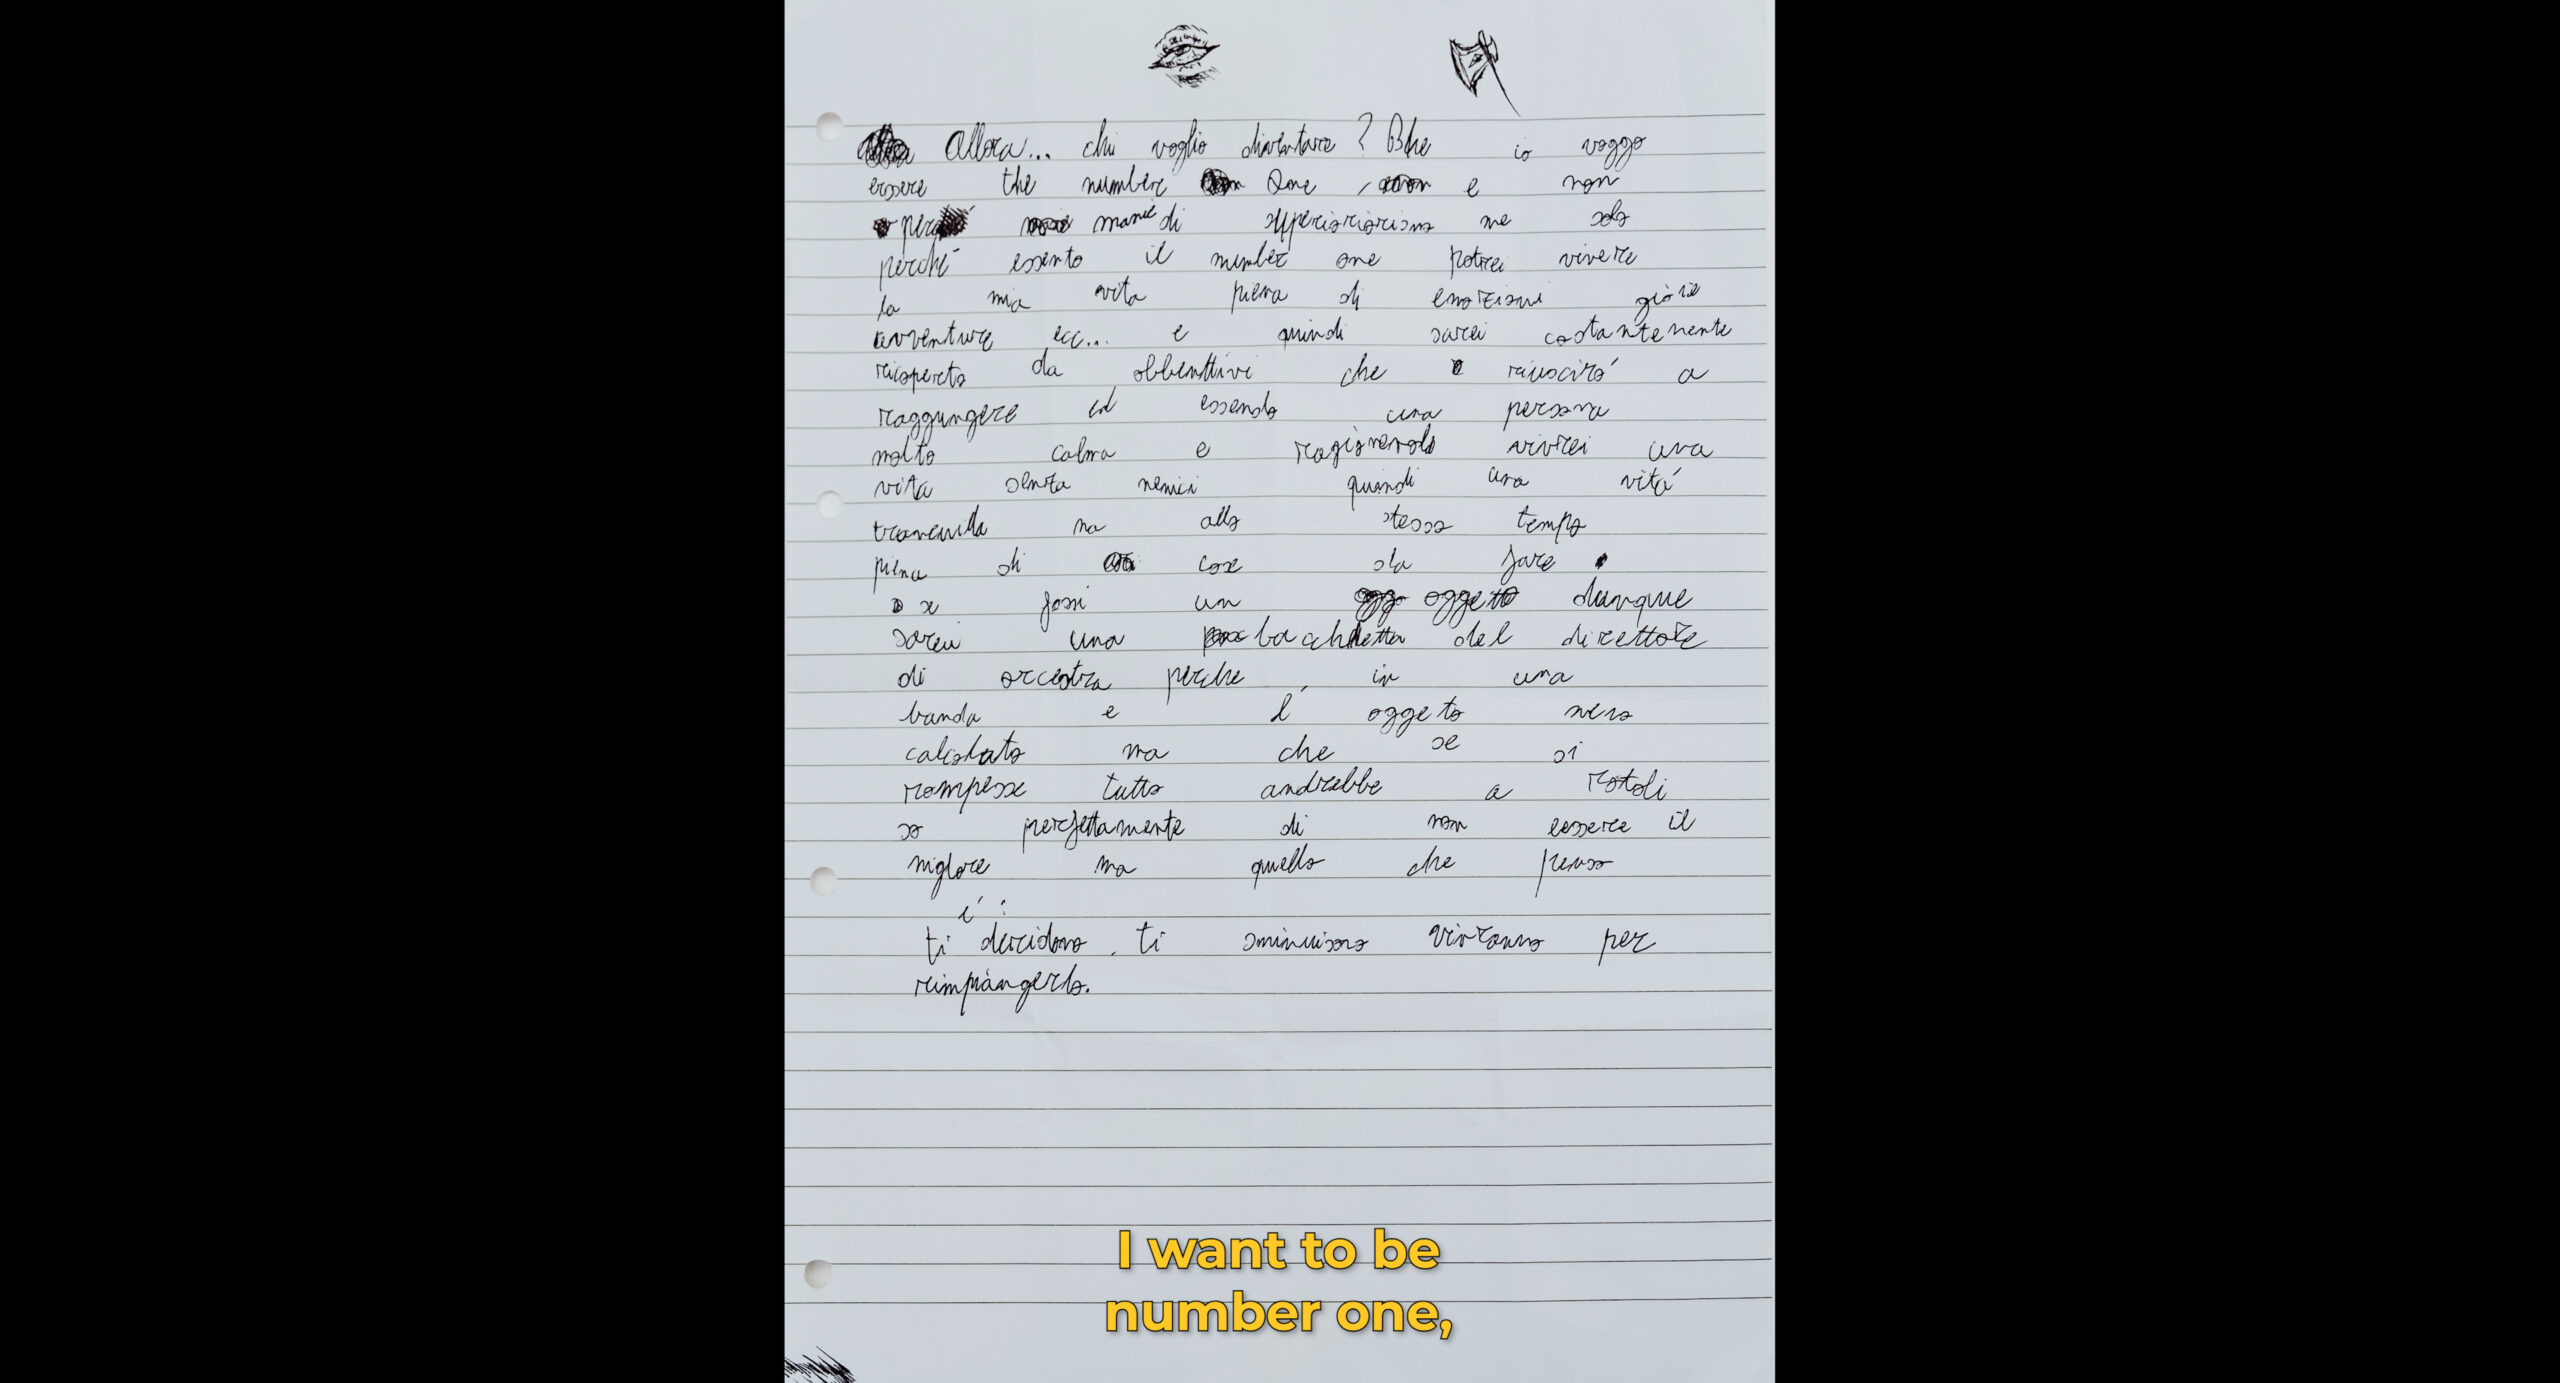 Allora... chi voglio diventare? Bhe io voggo
essere the number One, e non
per manie di me solo
perché essento il number one potrei vivere
la mia vita piena di emozioni gioie
avventure ecc... e quindi sarei costantemente
ricoperto da obbenttivi che riusciró a
raggungere ed essendo una persona
molto calma e vivrei una
vita senza nemici quindi una vitá
ma allo stesso tempo
piena di cose da fare
se fossi un oggetto dunque
sarei una bachhetta del direttore
di orcestra perche, in una
banda e l' oggeto meno
calcolato ma che se si
rompesse tutto andrebbe a rotoli
so perfettamente di non essere il
miglore ma quello che penso
é:
ti deridono, ti sminuisono vivranno per
rimpiangerlo.
I want to be
number one,